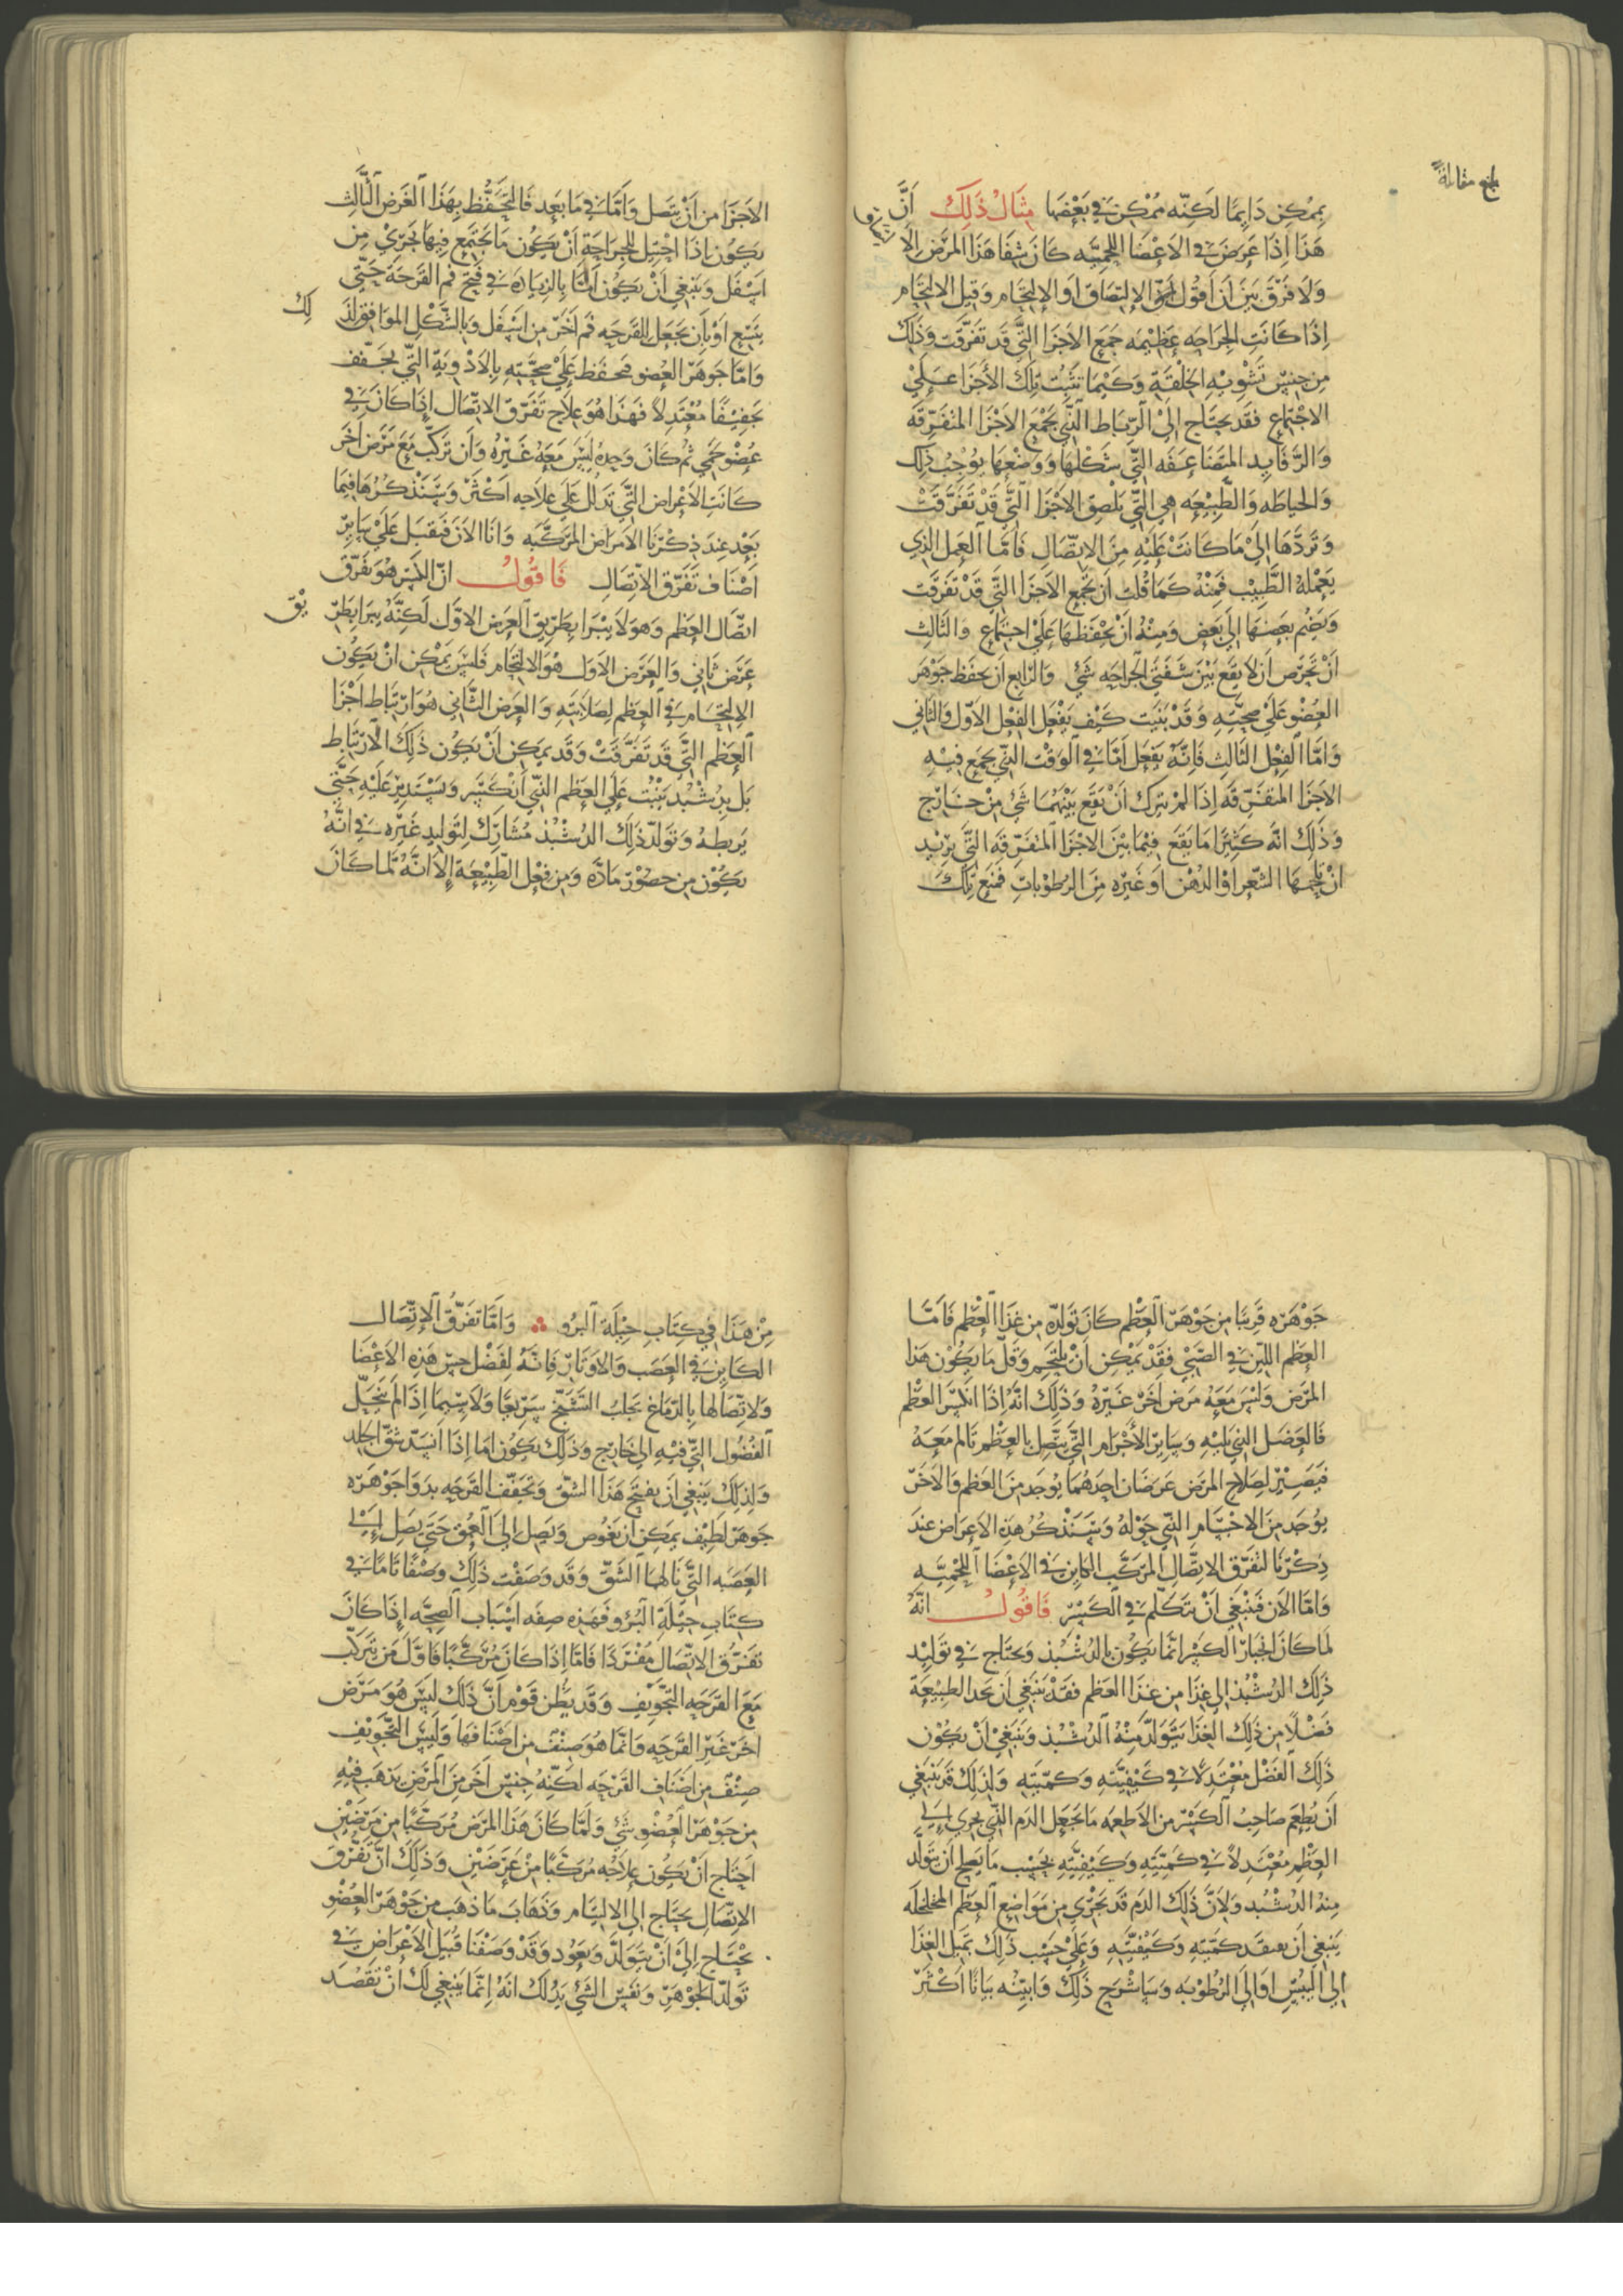 بلغ مقابلة
يمكن دايما لكنه ممكن في بعضها مثال ذلك أن
هذا إذا عرض في الاعضا اللحميه كان شفا هذا المرض الا
ولا فرق بين أن أقول الإلتصاق أو الإلتحام وقبل الالتحام
إذا كانت الجراحه عظيمه جمع الاجزا التي قد تفرقت وذلك
من جنس تشويه الخلقة وكيما تثبت تلك الأجزا على
الاجتماع فقد يحتاج إلى الرباط الذي يجمع الاجزا المتفرقه
والرفايد المتضاعفه التي شكلها ووضعها يوجب ذلك
والخياطه والطبيعه هي التي يلصق الاجزا التي قد تفرقت
وتردها إلى ما كانت عليه من الاتصال فاما العمل الذي
يعمله الطبيب فمنه كما قلت ان يجمع الاجزا التي قد تفرقت
ويضم بعضها إلى بعض ومنه ان يحفظها على اجتماع والثالث
أن تحرص أن لا يقع بين شفتي الجراحه شي والرابع أن يحفظ جوهر
العضو على صحته وقد بنيت كيف يفعل الفعل الاول والثاني
واما الفعل الثالث فانه يفعل أما في الوقت الذي يجمع فيه
الاجزا المتفرقه إذا لم يترك أن يقع بينهما شي من خارج
وذلك انه كثيرا ما يقع فيما بين الاجزا المتفرقه التي يريد
ان يلحمها الشعر او الدهن او غيره من الرطوبات فمنع تلك
الاجزا من أن يتصل واما في ما بعد فالتحفظ بهذا الغرض الثالث
يكون إذا احتيل للجراحة أن يكون ما يجتمع فيها يجري من
اسفل وينبغي أن يكون اما بالزيادة في فتح فم القرحة حتى
يتسع او بأن يجعل للقرحه فم آخر من اسفل وبالشكل الموافق لذلك
واما جوهر العضو فيحفظ على صحته بالادوية التي يجفف
تجفيفا معتدلا فهذا هو علاج تفرق الاتصال إذا كان في
عضو لحمي ثم كان وحده ليس معه غيره وان تركب مع مرض آخر
كانت الاعراض التي تدلل على علاجه اكثر وسنذكرها فيما
بعد عند ذكرنا الأمراض المركبه وانا الان فمقبل على ساير
أصناف تفرق الاتصال فاقول ان الكسر هو تفرق
اتصال العظم وهو لا يبرا بطريق العرض الاول لكنه يبرا بطريق
عرض ثاني والعرض الأول هو الالتحام فليس يمكن ان يكون
الإلتحام في العظم لصلابته والعرض الثاني هو ارتباط اجزا
العظم التي قد تفرقت وقد يمكن أن يكون ذلك الارتباط
بل بدشبد ينبت على العظم الذي أنكسر ويستدير عليه حتى
يربطه وتولد ذلك الدشبذ مشارك لتوليد غيره في انه
يكون من حضور مادة ومن فعل الطبيعة إلا انه لما كان
جوهره قريبا من جوهر العظم كان تولده من غذا العظم فاما
العظم اللين في الصبي فقد يمكن أن يلتحم وقل ما يكون هذا
المرض وليس معه مرض آخر غيره وذلك انه إذا انكسر العظم
فالعضل الذي يليه وساير الأجرام التي يتصل بالعظم تالم معه
فيصير لصلاح المرض عرضان احدهما يوجد من العظم والاخر
يوجد من الاجسام التي حوله وسنذكر هذه الاعراض عند
ذكرنا لتفرق الاتصال المركب الكاين في الاعضا اللحميه
واما الان فينبغي أن نتكلم في الكسر فاقول انه
لما كان انجبار الكسر انما يكون بالدشبذ ويحتاج في توليد
ذلك الدشبذ إلى غذا من غذا العظم فقد ينبغي أن يجد الطبيعة
فضلا من ذلك الغذا يتولد منه الدشبذ وينبغي أن يكون
ذلك الفضل معتدلا في كيفيته وكميته ولذلك قد ينبغي
أن يطعم صاحب الكسر من الأطعمه ما يجعل الدم الذي يجري إلى
العظم معتدلا في كميته وكيفيته بحسب ما يصلح أن يتولد
منه الدشبد ولأن ذلك الدم قد يجري من مواضع العظم المخلخله
ينبغي أن يعقد كميته وكيفيته وعلى حسب ذلك يميل الغذا
إلى اليبس او إلى الرطوبه وسأشرح ذلك وابينه بيانا اكثر
من هذا في كتاب حيلة البرو واما تفرق الإتصال
الكاين في العصب والاوتار فانه لفضل حس هذه الاعضا
ولاتصالها بالدماغ يجلب التشنج سريعا ولا سيما إذا لم يتحلل
الفضول التي فيه إلى خارج وذلك يكون اما إذا انسد شق الجلد
ولذلك ينبغي أن يفتح هذا الشق ويجفف القرحه بدوا جوهره
جوهر لطيف يمكن أن يغوص ويصل إلى العمق حتى يصل إلى
العصبه التي نالها الشق وقد وصفت ذلك وصفا تاما في
كتاب حيلة البرو فهذه صفه اسباب الصحه إذا كان
تفرق الاتصال مفردا فاما إذا كان مركبا فاول من تركب
مع القرحه التجويف وقد يظن قوم أن ذلك ليس هو مرض
اخر غير القرحه وانما هو صنف من اصنافها وليس التجويف
صنف من اصناف القرحه لكنه جنس آخر من المرض يذهب فيه
من جوهر العضو شي ولما كان هذا المرض مركبا من مرضين
احتاج أن يكون علاجه مركبا من عرضين وذلك أن تفرق
الاتصال يحتاج إلى الالتيام وذهاب ما ذهب من جوهر العضو
يحتاج إلى أن يتولد ويعود وقد وصفنا قبيل الاعراض في
تولد الجوهر ونفس الشي يدلك انه إنما ينبغي لك أن تقصد